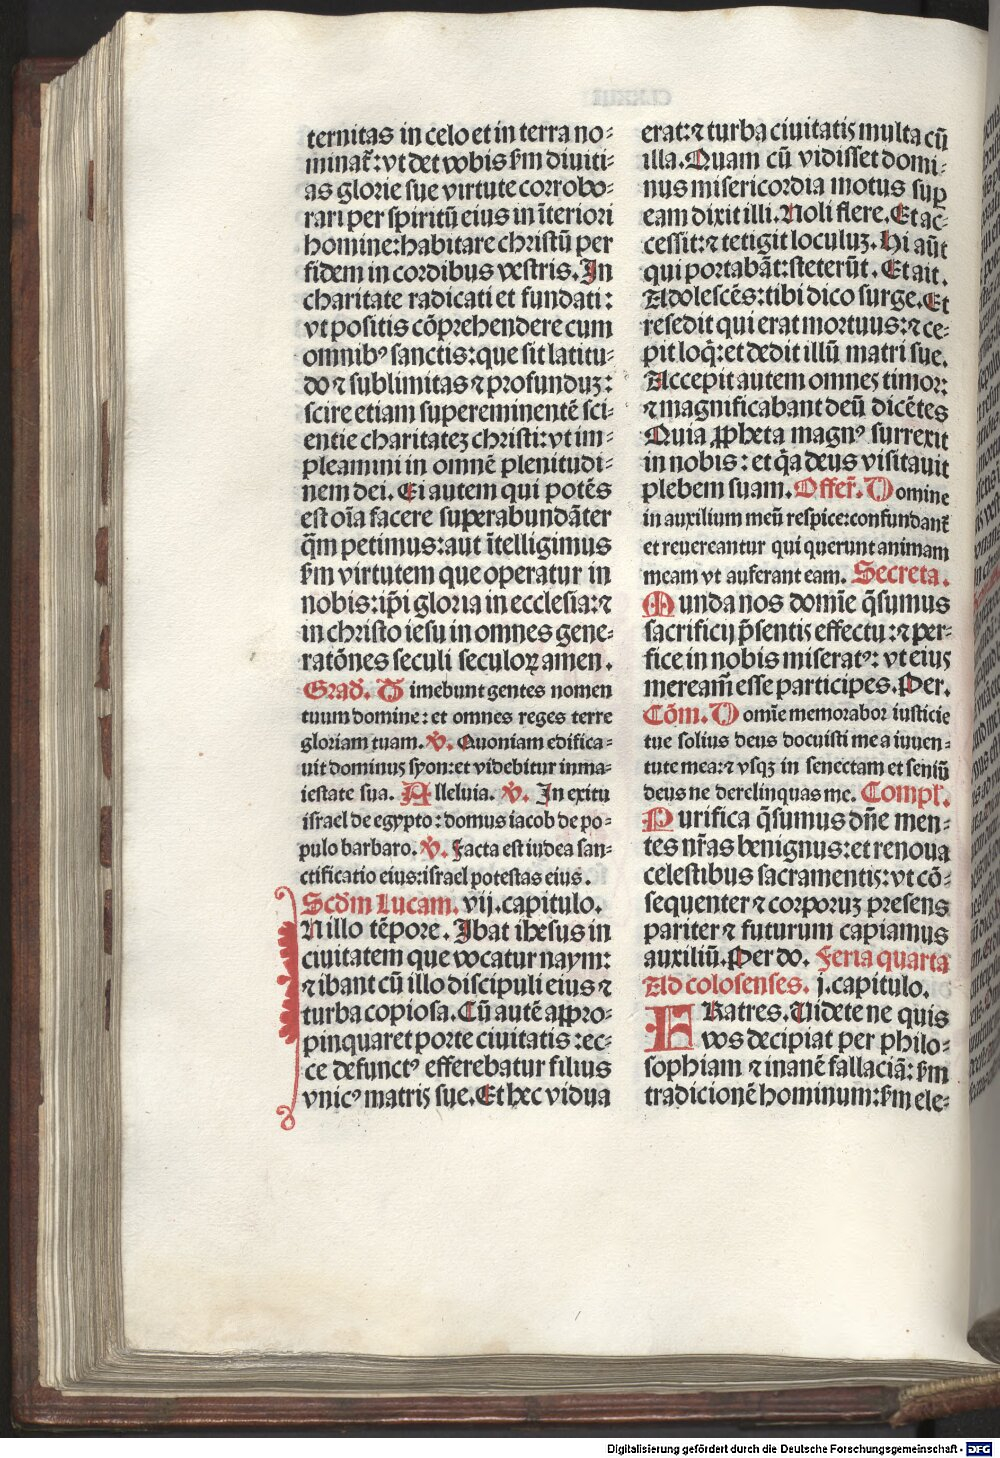 ternitas in celo et in terra no⸗
minat᷑: vt det vobis ẜm diuiti⸗
as glorie sue virtute corrobo⸗
rari per spiritū eius in īteriori
homine: habitare christū per
fidem in cordibus vestris. In
charitate radicati et fundati:
vt positis cōprehendere cum
omnibꝰ sanctis: que sit latitu⸗
do ⁊ sublimitas ⁊ profunduꝫ:
scire etiam supereminentē sci⸗
entie charitateꝫ christi: vt im⸗
pleamini in omnē plenitudi⸗
nem dei. Ei autem qui potēs
est oīa facere superabundāter
q̄m petimus: aut ītelligimus
ẜm virtutem que operatur in
nobis: ip̄i gloria in ecclesia: ⁊
in christo iesu in omnes gene⸗
ratōnes seculi seculoꝝ amen.
Grad᷑. Timebunt gentes nomen
tuum domine: et omnes reges terre
gloriam tuam. ℣. Quoniam edifica⸗
uit dominus syon: et videbitur in ma⸗
iestate sua. Alleluia. ℣. In exitu
israel de egypto: domus iacob de po⸗
pulo barbaro. ℣. Facta est iudea san⸗
ctificatio eius: israel potestas eius.
Scd̄m Lucam. vij. capitulo.
IN illo tēpore. Ibat ihesus in
ciuitatem que vocatur naym:
⁊ ibant cū illo discipuli eius ⁊
turba copiosa. Cū autē appro⸗
pinquaret porte ciuitatis: ec⸗
ce defunctꝰ efferebatur filius
vnicꝰ matris sue. Et hec vidua
erat: ⁊ turba ciuitatis multa cū
illa. Quam cū vidisset domi⸗
nus misericordia motus suꝑ
eam dixit illi. Noli flere. Et ac⸗
cessit: ⁊ tetigit loculuꝫ. Hi aūt
qui portabāt: steterūt. Et ait.
Adolescēs: tibi dico surge. Et
resedit qui erat mortuus: ⁊ ce⸗
pit loq̄: et dedit illū matri sue.
Accepit autem omnes timor:
⁊ magnificabant deū dicētes
Quia ꝓpheta magnꝰ surrexit
in nobis: et q̄a deus visitauit
plebem suam. Offer᷑. Domine
in auxilium meū respice: confundant᷑
et reuereantur qui querunt animam
meam vt auferant eam. Secreta.
Munda nos domīe q̄sumus
sacrificij p̄sentis effectu: ⁊ per⸗
fice in nobis miseratꝰ: vt eius
meream̄ esse participes. Per.
Cōm. Domīe memorabor iusticie
tue solius deus docuisti me a iuuen⸗
tute mea: ⁊ vsqꝫ in senectam et seniū
deus ne derelinquas me. Compl᷑.
Purifica q̄sumus dn̄e men⸗
tes nr̄as benignus: et renoua
celestibus sacramentis: vt cō⸗
sequenter ⁊ corporuꝫ presens
pariter ⁊ futurum capiamus
auxiliū. Per do. Feria quarta
Ad colosenses. j. capitulo
FRatres. Videte ne quis
vos decipiat per philo⸗
sophiam ⁊ inanē fallaciā: ẜm
tradicionē hominum: ẜm ele⸗
Digitalisierung gefördert durch die Deutsche Forschungsgemeinschaft - DFG